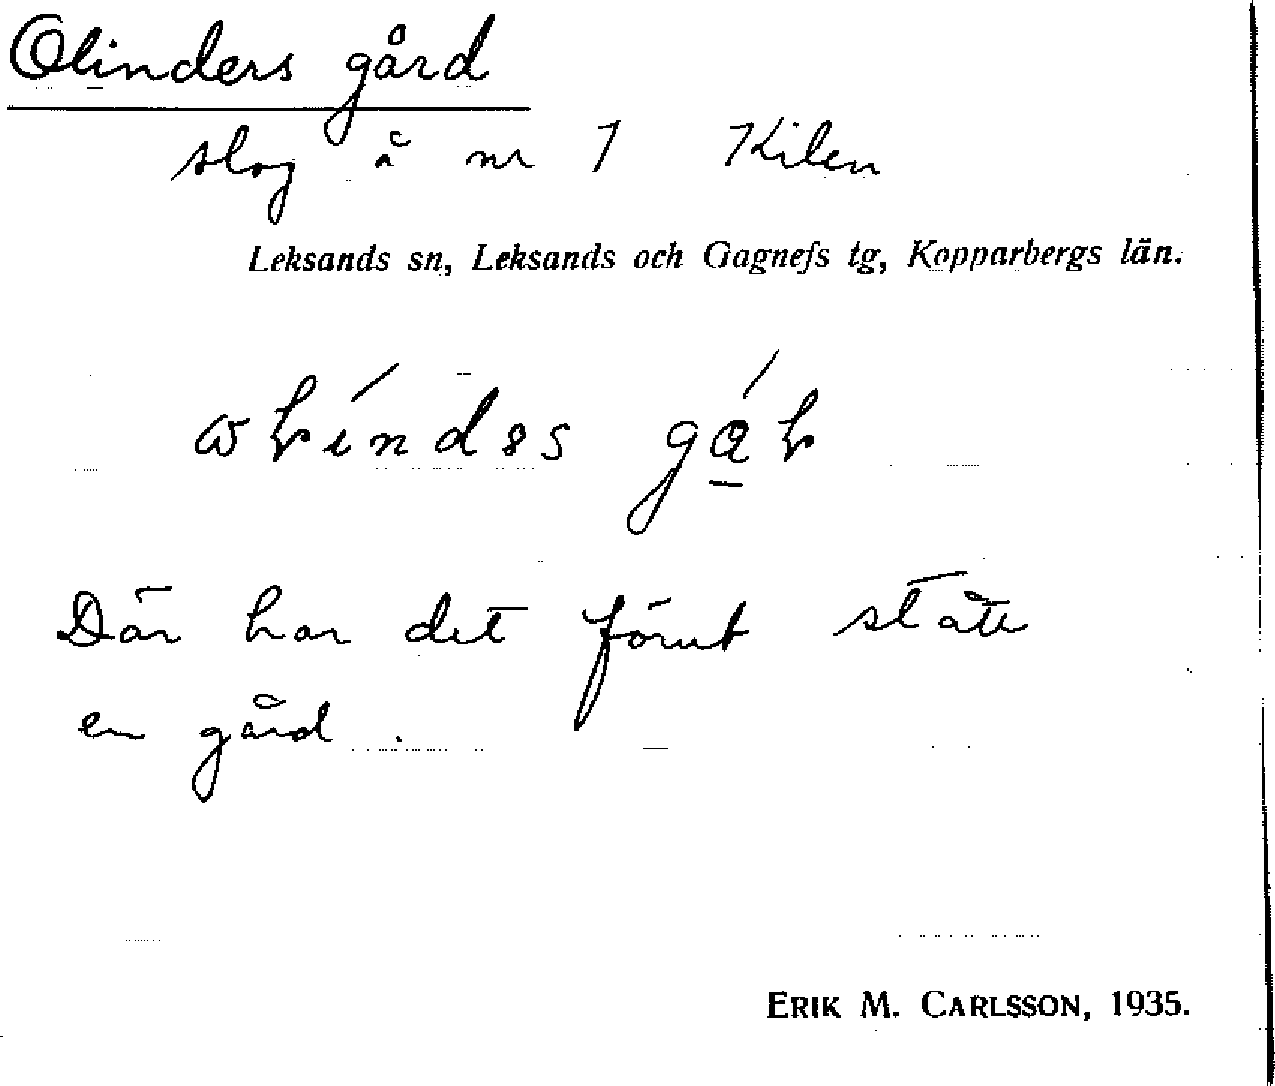 Olinders gård
slog å nr 1 Kilen
Leksands sn, Leksands och Gagnefs tg, Kopparbergs län.
Där har det förut stått
en gård.
ERIK M. CARLSSON, 1935.